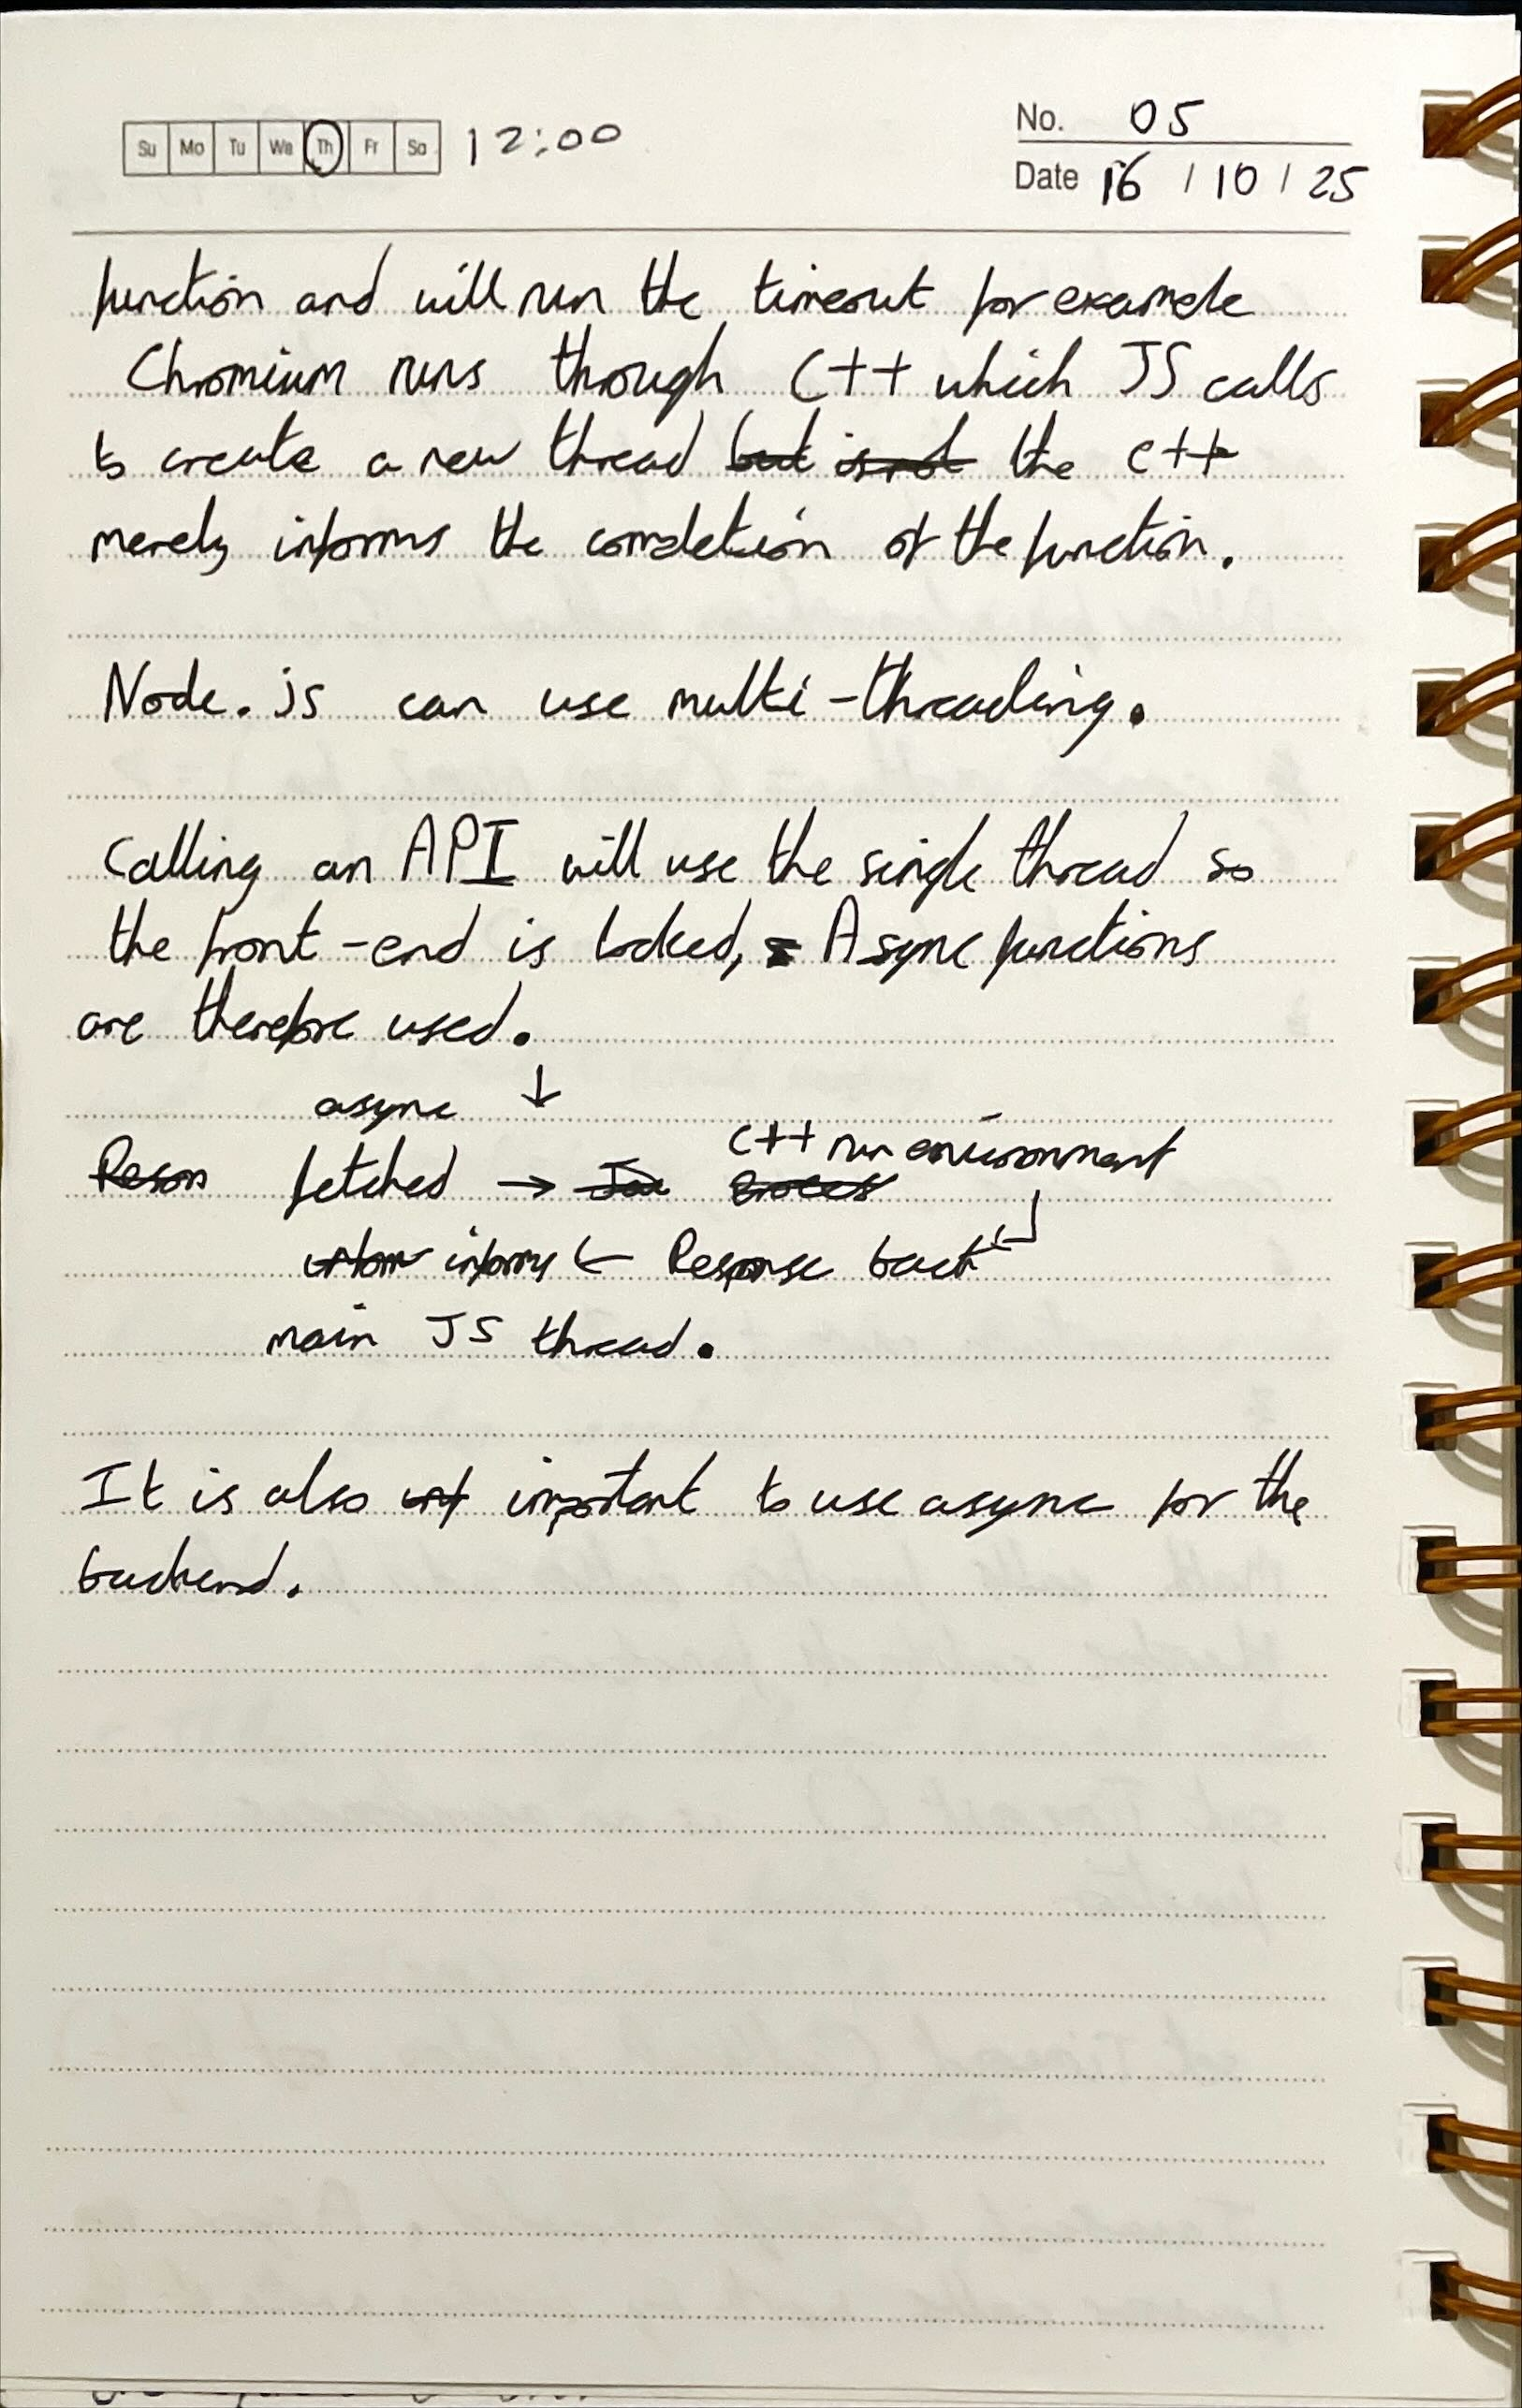 Su Mo Tu We Th Fr Sa 12:00
No. 05
Date 16 / 10 / 25
function and will run the timeout for example
Chromium runs through C++ which JS calls
to create a new thread but is not the C++
merely informs the completion of the function.
Node.js can use multi-threading.
Calling an API will use the single thread so
the front-end is locked, Async functions
are therefore used.
async ↓
C++ run environment
Reson fetched → Jav process
inform informs ← Response back
main JS thread.
It is also int important to use async for the
backend.